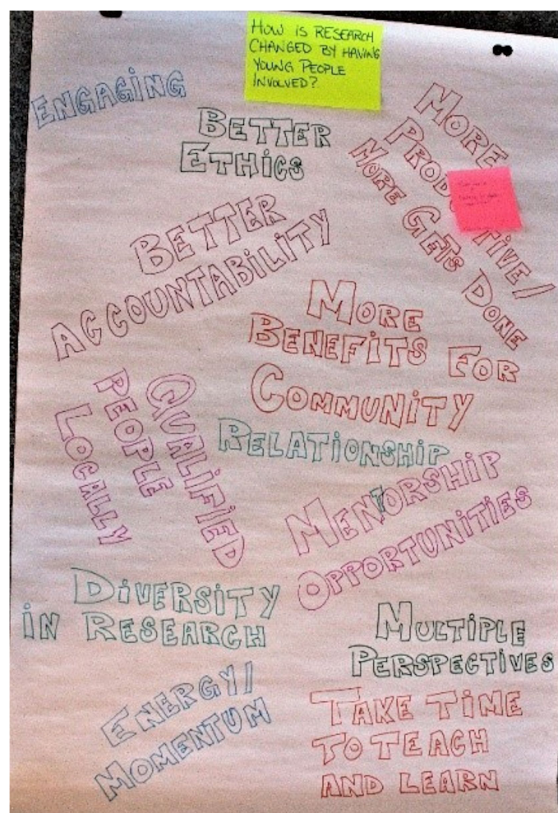 HOW IS RESEARCH
CHANGED BY HAVING
YOUNG PEOPLE
INVOLVED?
ENGAGING
BETTER
ETHICS
MORE
PRODUCTIVE/
MORE GETS DONE
BETTER
ACCOUNTABILITY
MORE
BENEFITS FOR
COMMUNITY
QUALIFIED
PEOPLE
LOCALLY
RELATIONSHIP
MENTORSHIP
OPPORTUNITIES
DIVERSITY
IN RESEARCH
MULTIPLE
PERSPECTIVES
ENERGY/
MOMENTUM
TAKE TIME
TO TEACH
AND LEARN